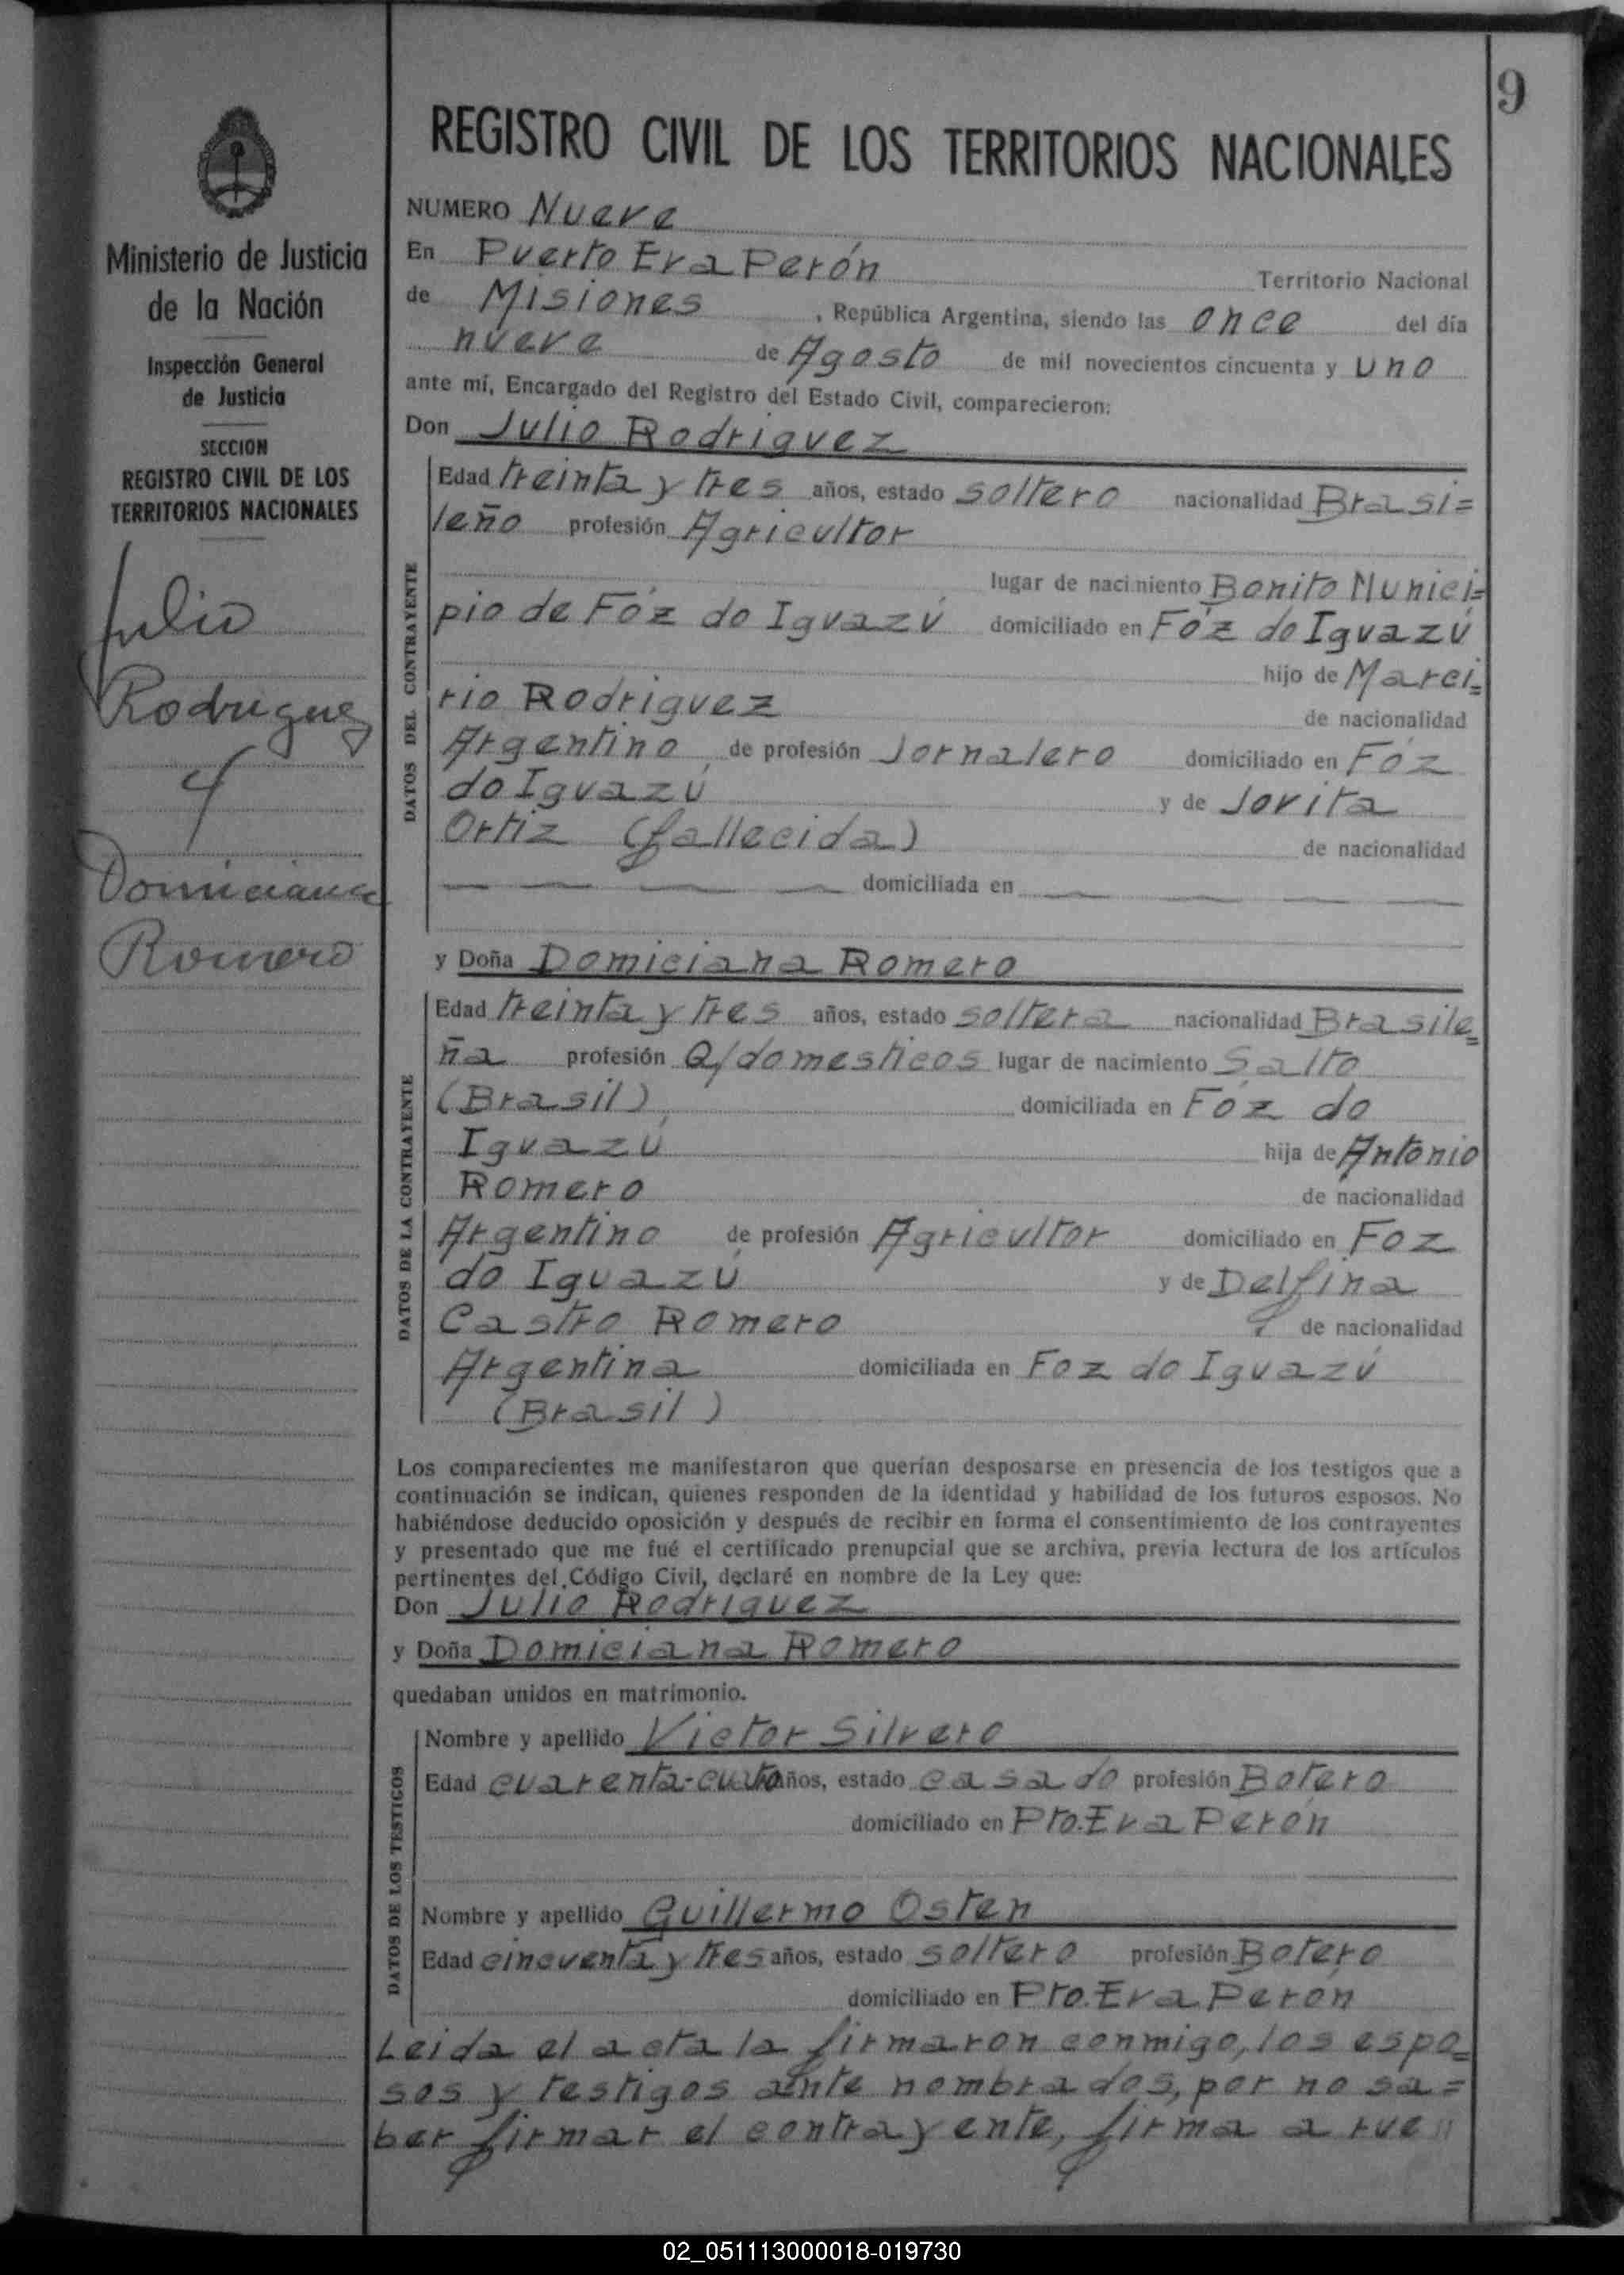 9
REGISTRO CIVIL DE LOS TERRITORIOS NACIONALES
Ministerio de Justicia
de la Nación
Inspección General
de Justicia
SECCION
REGISTRO CIVIL DE LOS
TERRITORIOS NACIONALES
Julio
Rodriguez
y
Domiciana
Romero
NUMERO Nueve
En Puerto Eva Perón Territorio Nacional
de Misiones, República Argentina, siendo las once del día
nueve de Agosto de mil novecientos cincuenta y uno
ante mí, Encargado del Registro del Estado Civil, comparecieron:
Don Julio Rodriguez
DATOS DEL CONTRAYENTE
Edad treinta y tres años, estado soltero nacionalidad Brasi=
leño profesión Agricultor
lugar de nacimiento Bonito Munici=
pio de Fóz do Iguazú domiciliado en Fóz do Iguazú
hijo de Marci=
rio Rodriguez de nacionalidad
Argentino de profesión Jornalero domiciliado en Fóz
do Iguazú y de Jovita
Ortiz (fallecida) de nacionalidad
— — — — domiciliada en — — — —
y Doña Domiciana Romero
DATOS DE LA CONTRAYENTE
Edad treinta y tres años, estado soltera nacionalidad Brasile=
ña profesión Q/domesticos lugar de nacimiento Salto
(Brasil) domiciliada en Fóz do
Iguazú hija de Antonio
Romero de nacionalidad
Argentino de profesión Agricultor domiciliado en Foz
do Iguazú y de Delfina
Castro Romero de nacionalidad
Argentina domiciliada en Foz do Iguazú
(Brasil)
Los comparecientes me manifestaron que querían desposarse en presencia de los testigos que a
continuación se indican, quienes responden de la identidad y habilidad de los futuros esposos. No
habiéndose deducido oposición y después de recibir en forma el consentimiento de los contrayentes
y presentado que me fué el certificado prenupcial que se archiva, previa lectura de los artículos
pertinentes del Código Civil, declaré en nombre de la Ley que:
Don Julio Rodriguez
y Doña Domiciana Romero
quedaban unidos en matrimonio.
DATOS DE LOS TESTIGOS
Nombre y apellido Victor Silvero
Edad cuarenta-cuatro años, estado casado profesión Botero
domiciliado en Pto. Eva Perón
Nombre y apellido Guillermo Osten
Edad cincuenta y tres años, estado soltero profesión Botero
domiciliado en Pto. Eva Perón
Leida el acta la firmaron conmigo, los espo=
sos y testigos ante nombrados, por no sa=
ber firmar el contrayente, firma a rue"
02_051113000018-019730